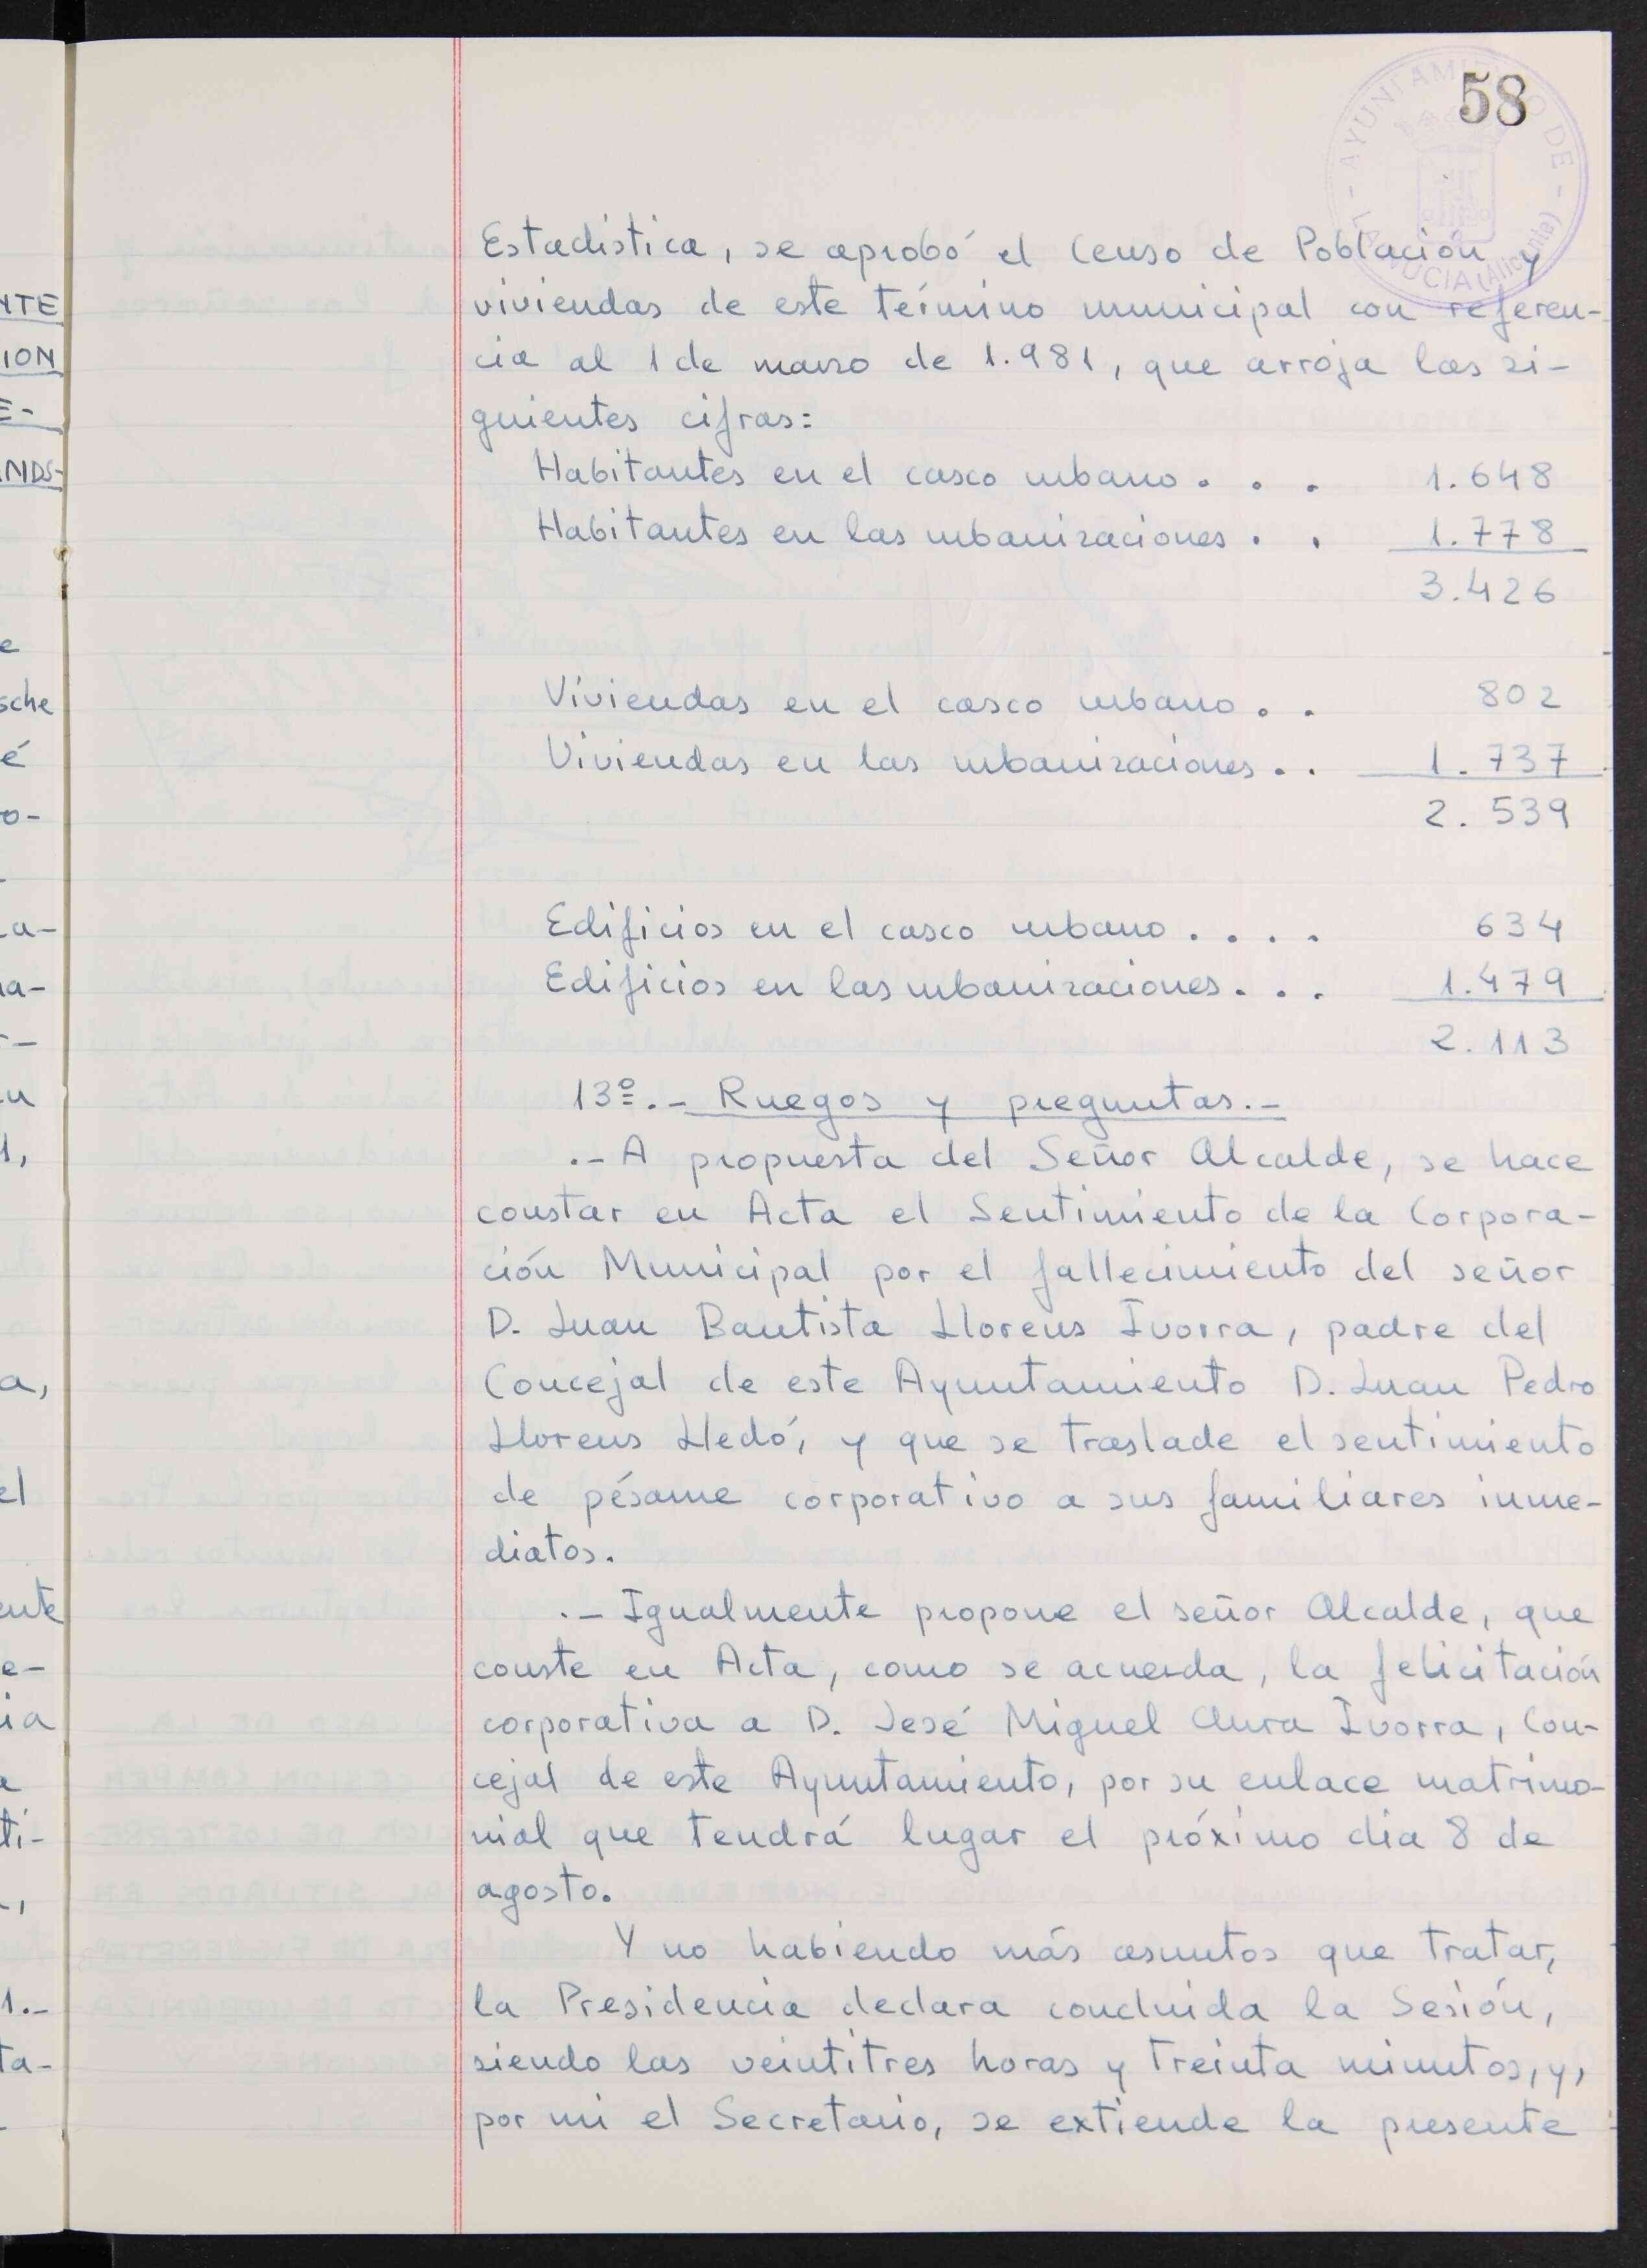 58
AYUNTAMIENTO DE
LA NUCIA (Alicante)
Estadística, se aprobó el Censo de Población y
viviendas de este término municipal con referen-
cia al 1 de marzo de 1.981, que arroja las si-
guientes cifras:
Habitantes en el casco urbano . . . 1.648
Habitantes en las urbanizaciones . . 1.778
3.426
Viviendas en el casco urbano . . 802
Viviendas en las urbanizaciones . . 1.737
2.539
Edificios en el casco urbano . . . . 634
Edificios en las urbanizaciones . . . 1.479
2.113
13º.- Ruegos y preguntas.-
.- A propuesta del Señor Alcalde, se hace
constar en Acta el Sentimiento de la Corpora-
ción Municipal por el fallecimiento del señor
D. Juan Bautista Llorens Ivorra, padre del
Concejal de este Ayuntamiento D. Juan Pedro
Llorens Lledó, y que se traslade el sentimiento
de pésame corporativo a sus familiares inme-
diatos.
.- Igualmente propone el señor Alcalde, que
conste en Acta, como se acuerda, la felicitación
corporativa a D. José Miguel Aura Ivorra, Con-
cejal de este Ayuntamiento, por su enlace matrimo-
nial que tendrá lugar el próximo dia 8 de
agosto.
Y no habiendo más asuntos que tratar,
la Presidencia declara concluida la Sesión,
siendo las veintitres horas y treinta minutos, y,
por mi el Secretario, se extiende la presente